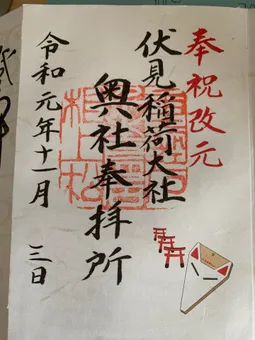 奉祝改元
伏見稲荷大社
奥社奉拝所
令和元年十一月三日